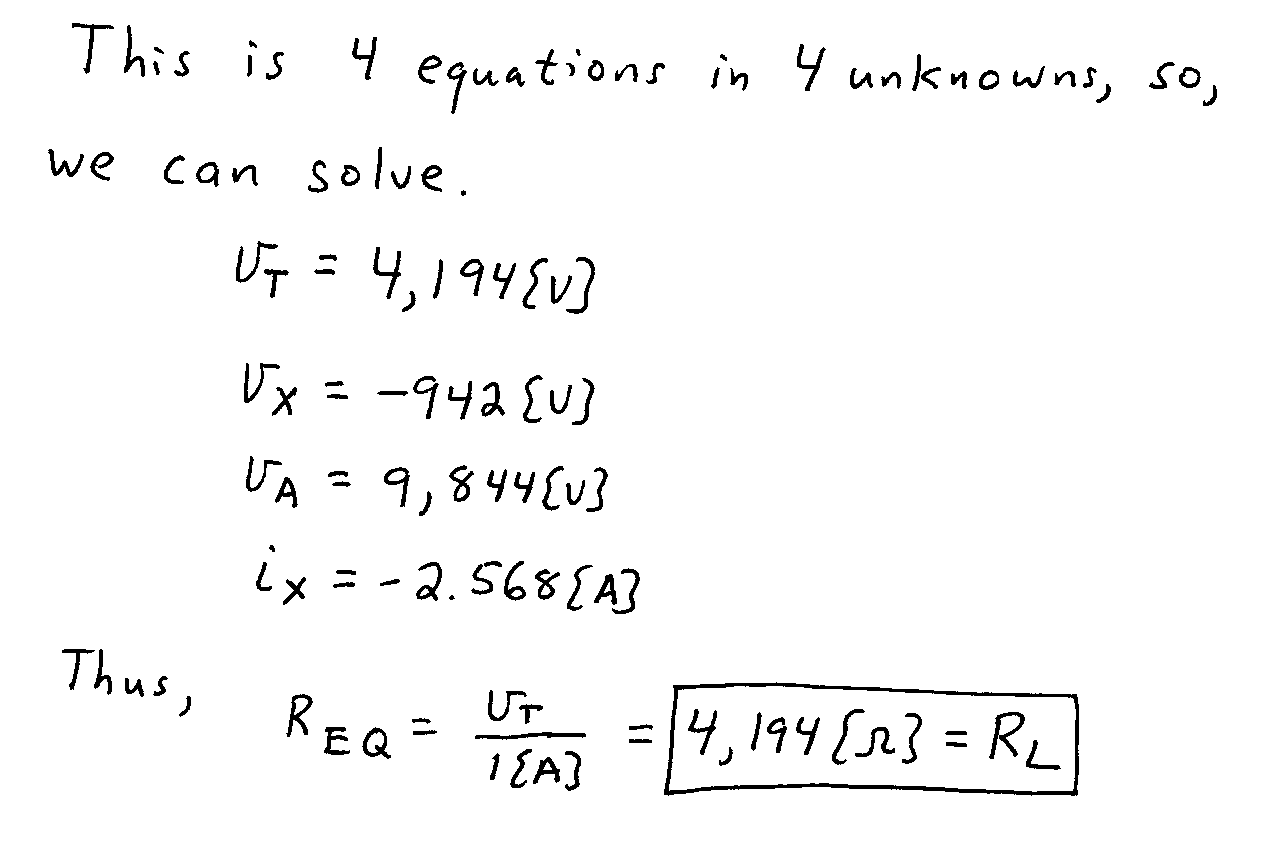 This is 4 equations in 4 unknowns, so,
we can solve.
v_T = 4,194{V}
v_X = -942{V}
v_A = 9,844{V}
i_X = -2.568{A}
Thus, R_EQ = v_T / 1{A} = 4,194{Ω} = R_L